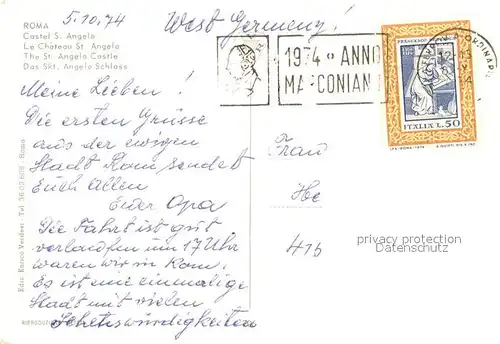 ROMA
Castel S. Angelo
Le Château St. Angelo
The St. Angelo Castle
Das Skt. Angelo Schloss
5.10.74 West Germany!
1974 · ANNO
MARCONIAN
FRANCESCO
ITALIA L.50
Meine Lieben!
Die ersten Grüsse
aus der ewigen
Stadt Rom sendet
Euch allen
Euer Opa
Die Fahrt ist gut
verlaufen um 17 Uhr
waren wir in Rom.
Es ist eine einmalige
Stadt mit vielen
Sehenswürdigkeiten
Frau
415
privacy protection
Datenschutz
Ediz. Enrico Verdesi - Roma